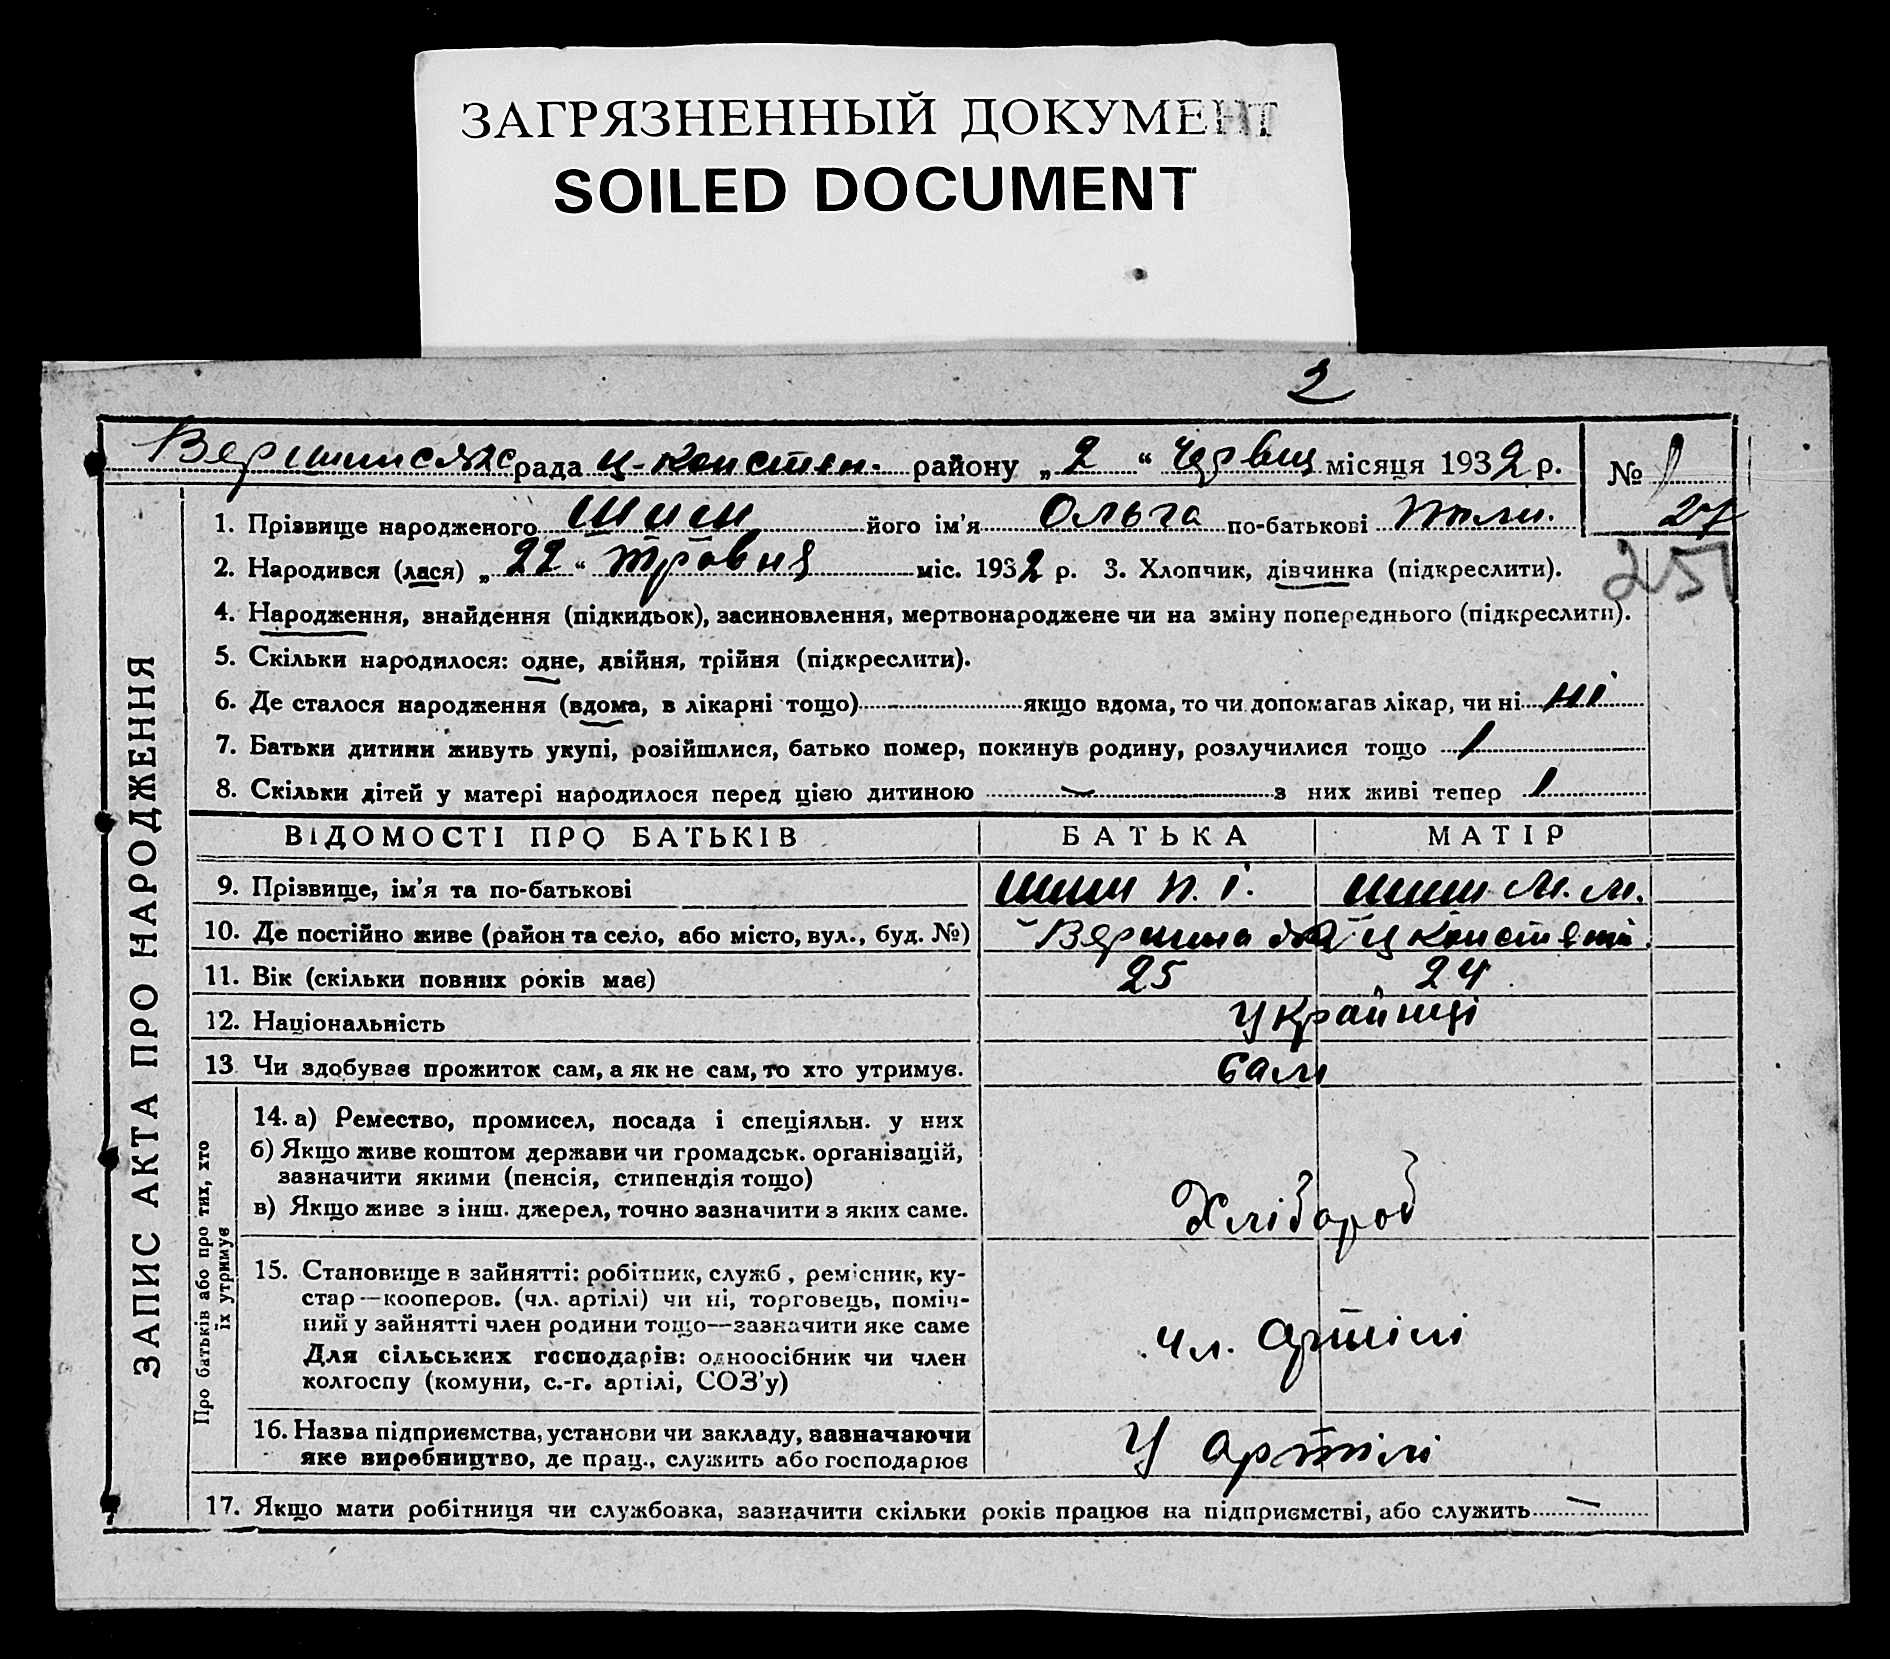 ЗАГРЯЗНЕННЫЙ ДОКУМЕНТ
SOILED DOCUMENT
2
рада ц-констен. району „ 2 “ червц місяця 1932 р. №
27
1. Прізвище народженого Шиш його ім'я Ольга по-батькові
2. Народився (лася) „ 22 “ травня міс. 1932 р. 3. Хлопчик, дівчинка (підкреслити).
251
4. Народження, знайдення (підкидьок), засиновлення, мертвонароджене чи на зміну попереднього (підкреслити).
5. Скільки народилося: одне, двійня, трійня (підкреслити).
6. Де сталося народження (вдома, в лікарні тощо) якщо вдома, то чи допомагав лікар, чи ні ні
7. Батьки дитини живуть укупі, розійшлися, батько помер, покинув родину, розлучилися тощо
8. Скільки дітей у матері народилося перед цією дитиною — з них живі тепер 1
ВІДОМОСТІ ПРО БАТЬКІВ БАТЬКА МАТІР
9. Прізвище, ім'я та по-батькові Шиш П. І. Шиш М. М.
10. Де постійно живе (район та село, або місто, вул., буд. №)
11. Вік (скільки повних років має) 25 24
12. Національність Українці
13 Чи здобуває прожиток сам, а як не сам, то хто утримує. Сам
14. а) Ремество, промисел, посада і спеціяльн. у них
б) Якщо живе коштом держави чи громадськ. організацій,
зазначити якими (пенсія, стипендія тощо)
в) Якщо живе з інш. джерел, точно зазначити з яких саме. Хлібороб
15. Становище в зайнятті: робітник, служб, ремісник, ку-
стар—кооперов. (чл. артілі) чи ні, торговець, поміч-
ний у зайнятті член родини тощо—зазначити яке саме
чл. артілі
Для сільських господарів: одноосібник чи член
колгоспу (комуни, с.-г. артілі, СОЗ'у)
16. Назва підприємства, установи чи закладу, зазначаючи
яке виробництво, де прац., служить або господарює У артілі
17. Якщо мати робітниця чи службовка, зазначити скільки років працює на підприємстві, або служить —
ЗАПИС АКТА ПРО НАРОДЖЕННЯ
Про батьків або про тих, хто
їх утримує